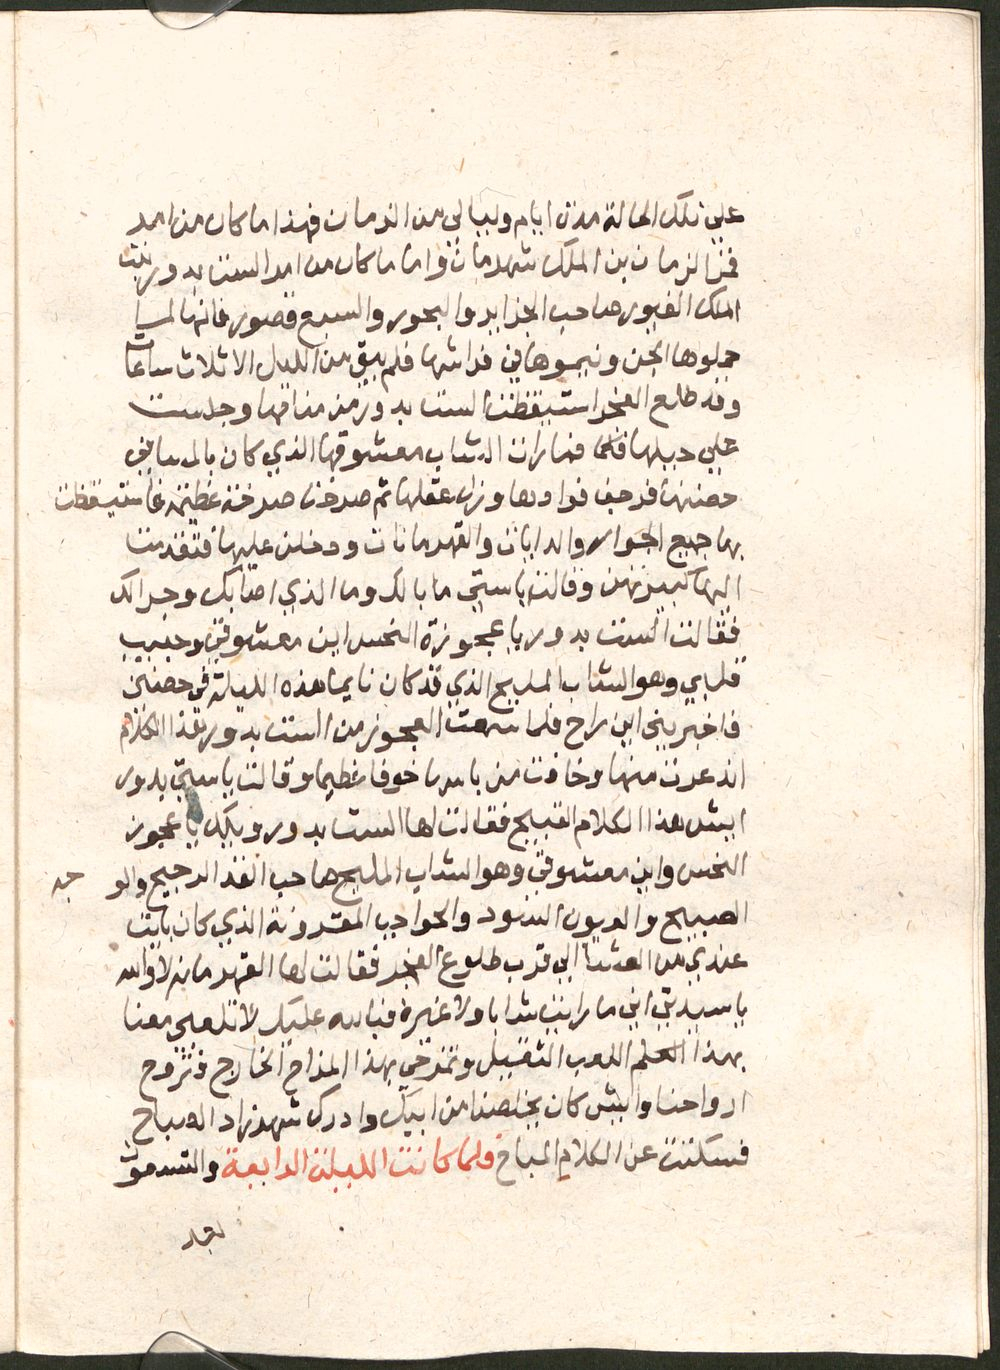 على تلك الحالة مدة ايام وليالى من الزمان فهذا ما كان من امر
قمر الزمان بن الملك شهرمان واما ما كان من امر الست بدور بنت
الملك الغيور صاحب الجزاير والبحور والسبع قصور فانها لما
حملوها الجن ونيموها في فراشها فلم يبق من الليل الا ثلاث ساعات
وقد طلع الفجر استيقظت الست بدور من منامها وجلست
على حيلها فلما فما رات الشاب معشوقها الذي كان بالمسا في
حضنها فرجف فوادها وزال عقلها ثم صرخت صرخة عظيمة فاستيقظت
بها جميع الجوار والدايات والقهرمانات ودخلن عليها فتقدمت
اليها كبيرتهن وقالت ياستي ما بالك وما الذي اصابك وجرا لك
فقالت الست بدور يا عجوزة النحس اين معشوقي وحبيب
قلبي وهو الشاب المليح الذي قد كان نايما هذه الليلة في حضني
فاخبريني اين راح فلما سمعت العجوز من الست بدور هذا الكلام
اندعرت منها وخافت من باسها خوفا عظيما وقالت ياستي بدور
ايش هذا الكلام القبيح فقالت لها الست بدور ويلك يا عجوز
النحس واين معشوقي وهو الشاب المليح صاحب القد الرجيح والو جه
الصبيح والعيون السود والحواجب المقرونة الذي كان بايت
عندي من العشا الى قرب طلوع الفجر فقالت لها القهرمانه لا والله
يا سيدتي اني ما رايت شابا ولا غيره فبالله عليك لا تلعبي معنا
بهذا اللعب الثقيل وتمزحي بهذا المزاح الخارج فتروح
ارواحنا وايش كان يخلصنا من ابيك وادرك شهرزاد الصباح
فسكتت عن الكلام المباح فلما كانت الليلة الرابعة والتسعون
بعد